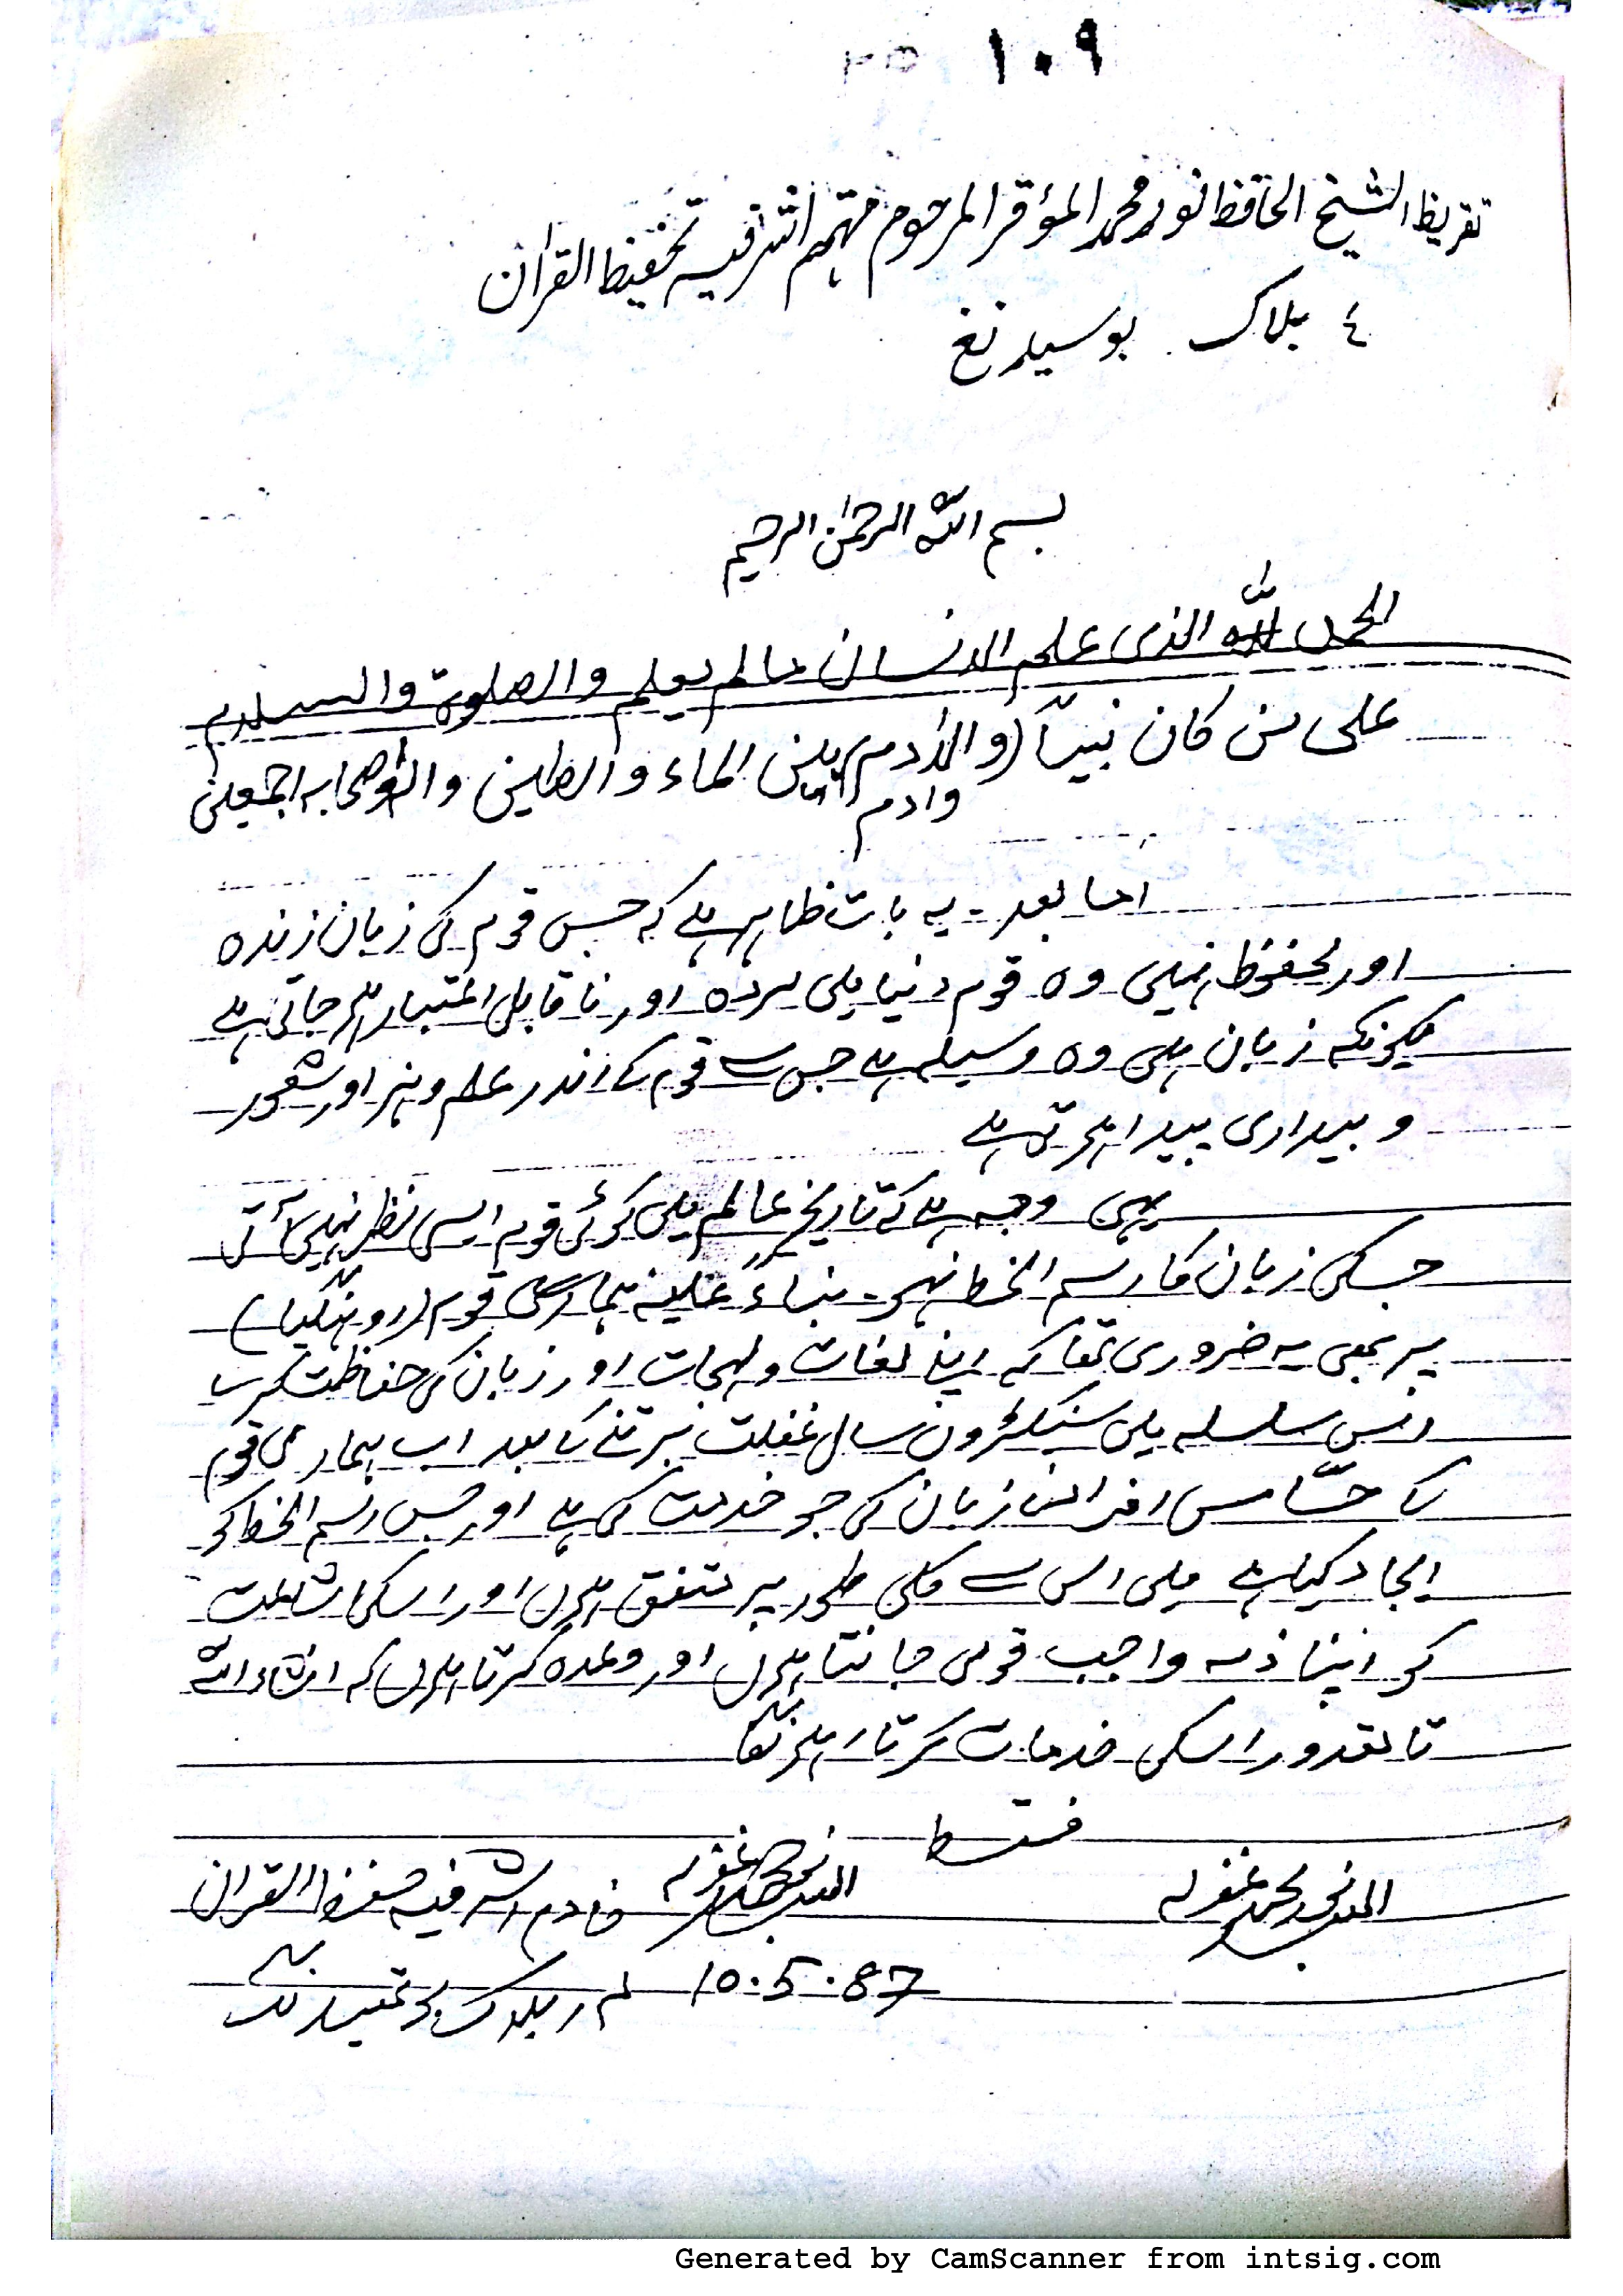 ١٠٩
تقريظ الشيخ الحافظ نور محمد المؤقر المرحوم مهتمم اشرفيه تحفيظ القران
٤ بلاك بوسيدنغ
بسم الله الرحمن الرحيم
الحمد لله الذى علم الانسان مالم يعلم والصلوة والسلام
على من كان نبيّاً بين الماء والطين واصحابه اجمعين
وادم
اما بعد۔ یہ بات ظاہر ہے کہ جس قوم کی زبان زندہ
اور محفوظ نہیں وہ قوم دنیا میں مردہ اور ناقابل اعتبار ہو جاتی ہے
کیونکہ زبان ہی وہ وسیلہ ہے جس سے قوم کے اندر علم وہنر اور شعور
و بیداری پیدا ہوتی ہے
یہی وجہ ہے کہ تاریخ عالم میں کوئی قوم ایسی نظر نہیں آتی
جسکی زبان کا رسم الخط نہو۔ بناءً علیہ ہماری قوم (روہنگیا)
پر بھی یہ ضروری تھا کہ اپنے لغات ولہجات اور زبان کی حفاظت کرے
اس سلسلہ میں سینکڑوں سال غفلت برتنے کے بعد اب ہماری قوم
کے حسّاس افراد زبان کی جو خدمت کی ہے اور جس رسم الخط کو
ایجاد کیا ہے میں اس سے کلی طور پر متفق ہوں اور اسکی اشاعت
کو اپنا ذمہ واجب قومی جانتا ہوں اور وعدہ کرتا ہوں کہ انشاء اللہ
تا مقدور اسکی خدمات کرتا رہونگا
فقط
العبد نور محمد غفرلہ
العبد غفرلہ خادم اشرفیہ حفظ القران
10.5.87 ۴ ر بلاک بوتھیدنگ
Generated by CamScanner from intsig.com